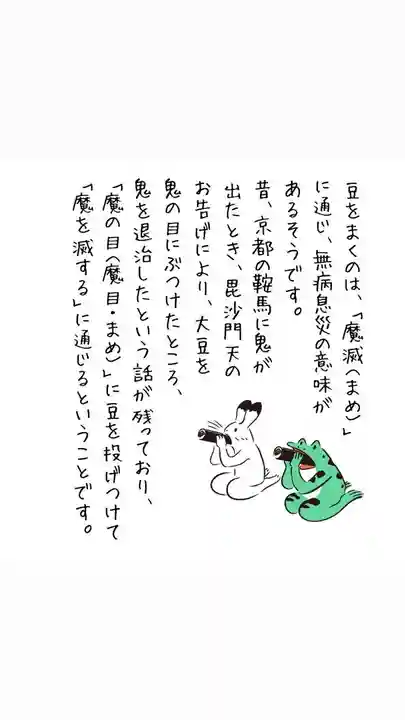 豆をまくのは、「魔滅(まめ)」
に通じ、無病息災の意味が
あるそうです。
昔、京都の鞍馬に鬼が
出たとき、毘沙門天の
お告げにより、大豆を
鬼の目にぶつけたところ、
鬼を退治したという話が残っており、
「魔の目(魔目・まめ)」に豆を投げつけて
「魔を滅する」に通じるということです。